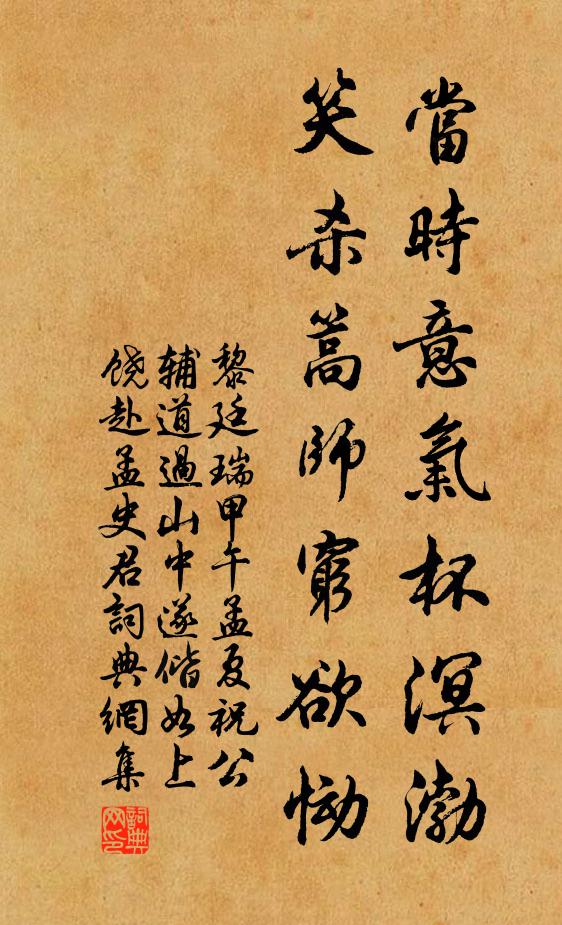 當時意氣杯溟渤
笑殺篙師窮欲慟
黎廷瑞甲午孟夏祝公
辅道過山中遂偕如上
饶赴孟史君詞典網集
詞典
网印